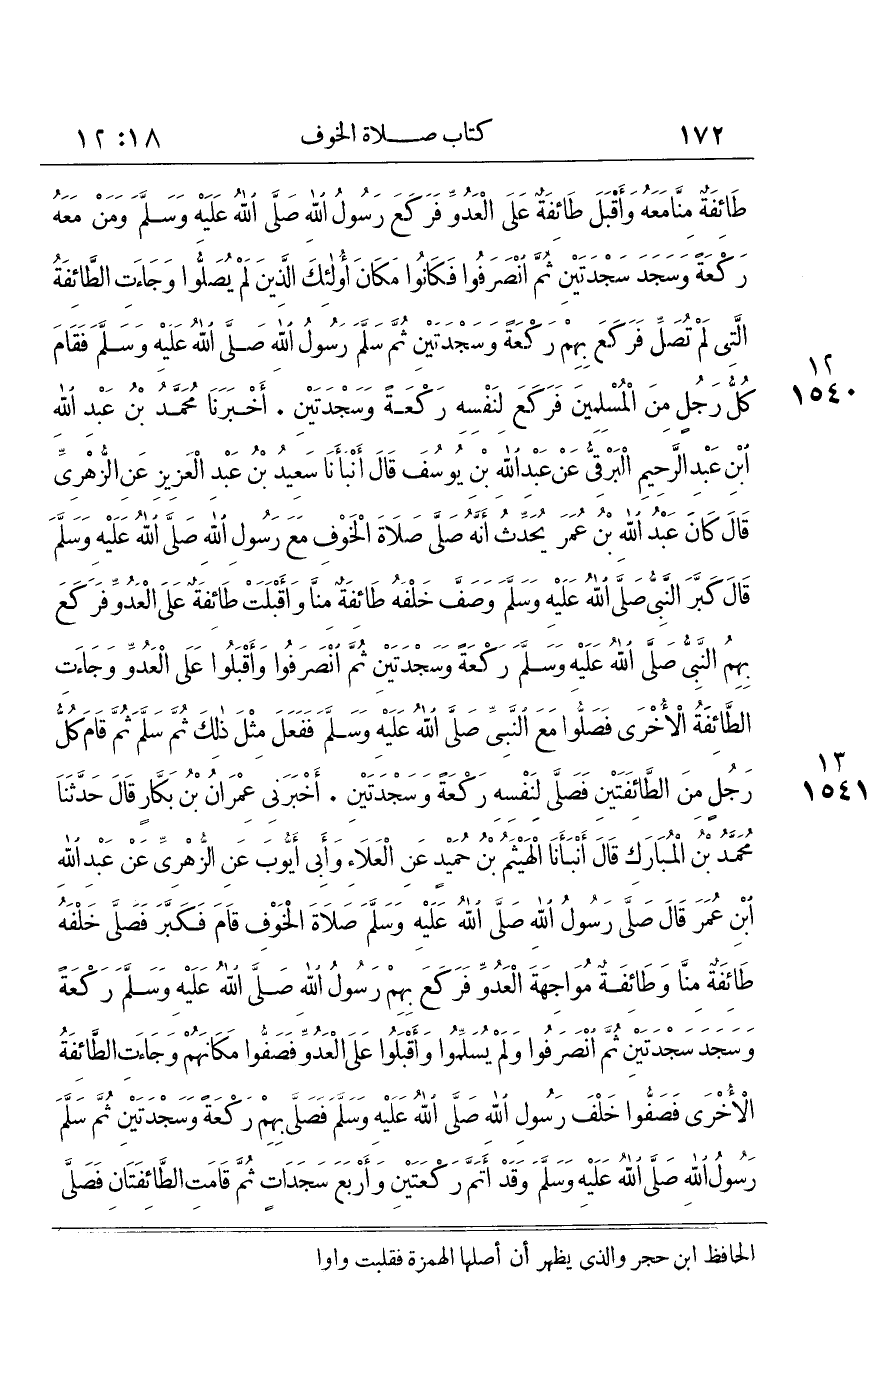 ١٧٢ كتاب صلاة الخوف ١٨: ١٢
طَائِفَةٌ مِنَّا مَعَهُ وَأَقْبَلَ طَائِفَةٌ عَلَى الْعَدُوِّ فَرَكَعَ رَسُولُ اللهِ صَلَّى اللهُ عَلَيْهِ وَسَلَّمَ وَمَنْ مَعَهُ
رَكْعَةً وَسَجَدَ سَجْدَتَيْنِ ثُمَّ انْصَرَفُوا فَكَانُوا مَكَانَ أُولَئِكَ الَّذِينَ لَمْ يُصَلُّوا وَجَاءَتِ الطَّائِفَةُ
الَّتِي لَمْ تُصَلِّ فَرَكَعَ بِهِمْ رَكْعَةً وَسَجْدَتَيْنِ ثُمَّ سَلَّمَ رَسُولُ اللهِ صَلَّى اللهُ عَلَيْهِ وَسَلَّمَ فَقَامَ
١٢
١٥٤٠
كُلُّ رَجُلٍ مِنَ الْمُسْلِمِينَ فَرَكَعَ لِنَفْسِهِ رَكْعَةً وَسَجْدَتَيْنِ . أَخْبَرَنَا مُحَمَّدُ بْنُ عَبْدِ اللهِ
ابْنِ عَبْدِ الرَّحِيمِ الْبَرْقِيُّ عَنْ عَبْدِ اللهِ بْنِ يُوسُفَ قَالَ أَنْبَأَنَا سَعِيدُ بْنُ عَبْدِ الْعَزِيزِ عَنِ الزُّهْرِيِّ
قَالَ كَانَ عَبْدُ اللهِ بْنُ عُمَرَ يُحَدِّثُ أَنَّهُ صَلَّى صَلَاةَ الْخَوْفِ مَعَ رَسُولِ اللهِ صَلَّى اللهُ عَلَيْهِ وَسَلَّمَ
قَالَ كَبَّرَ النَّبِيُّ صَلَّى اللهُ عَلَيْهِ وَسَلَّمَ وَصَفَّ خَلْفَهُ طَائِفَةٌ مِنَّا وَأَقْبَلَتْ طَائِفَةٌ عَلَى الْعَدُوِّ فَرَكَعَ
بِهِمُ النَّبِيُّ صَلَّى اللهُ عَلَيْهِ وَسَلَّمَ رَكْعَةً وَسَجْدَتَيْنِ ثُمَّ انْصَرَفُوا وَأَقْبَلُوا عَلَى الْعَدُوِّ وَجَاءَتِ
الطَّائِفَةُ الْأُخْرَى فَصَلُّوا مَعَ النَّبِيِّ صَلَّى اللهُ عَلَيْهِ وَسَلَّمَ فَفَعَلَ مِثْلَ ذٰلِكَ ثُمَّ سَلَّمَ ثُمَّ قَامَ كُلُّ
١٣
١٥٤١
رَجُلٍ مِنَ الطَّائِفَتَيْنِ فَصَلَّى لِنَفْسِهِ رَكْعَةً وَسَجْدَتَيْنِ . أَخْبَرَنِي عِمْرَانُ بْنُ بَكَّارٍ قَالَ حَدَّثَنَا
مُحَمَّدُ بْنُ الْمُبَارَكِ قَالَ أَنْبَأَنَا الْهَيْثَمُ بْنُ حُمَيْدٍ عَنِ الْعَلَاءِ وَأَبِي أَيُّوبَ عَنِ الزُّهْرِيِّ عَنْ عَبْدِ اللهِ
ابْنِ عُمَرَ قَالَ صَلَّى رَسُولُ اللهِ صَلَّى اللهُ عَلَيْهِ وَسَلَّمَ صَلَاةَ الْخَوْفِ قَامَ فَكَبَّرَ فَصَلَّى خَلْفَهُ
طَائِفَةٌ مِنَّا وَطَائِفَةٌ مُوَاجِهَةَ الْعَدُوِّ فَرَكَعَ بِهِمْ رَسُولُ اللهِ صَلَّى اللهُ عَلَيْهِ وَسَلَّمَ رَكْعَةً
وَسَجَدَ سَجْدَتَيْنِ ثُمَّ انْصَرَفُوا وَلَمْ يُسَلِّمُوا وَأَقْبَلُوا عَلَى الْعَدُوِّ فَصَفُّوا مَكَانَهُمْ وَجَاءَتِ الطَّائِفَةُ
الْأُخْرَى فَصَفُّوا خَلْفَ رَسُولِ اللهِ صَلَّى اللهُ عَلَيْهِ وَسَلَّمَ فَصَلَّى بِهِمْ رَكْعَةً وَسَجْدَتَيْنِ ثُمَّ سَلَّمَ
رَسُولُ اللهِ صَلَّى اللهُ عَلَيْهِ وَسَلَّمَ وَقَدْ أَتَمَّ رَكْعَتَيْنِ وَأَرْبَعَ سَجَدَاتٍ ثُمَّ قَامَتِ الطَّائِفَتَانِ فَصَلَّى
الحافظ ابن حجر والذي يظهر أن أصلها الهمزة فقلبت واوا